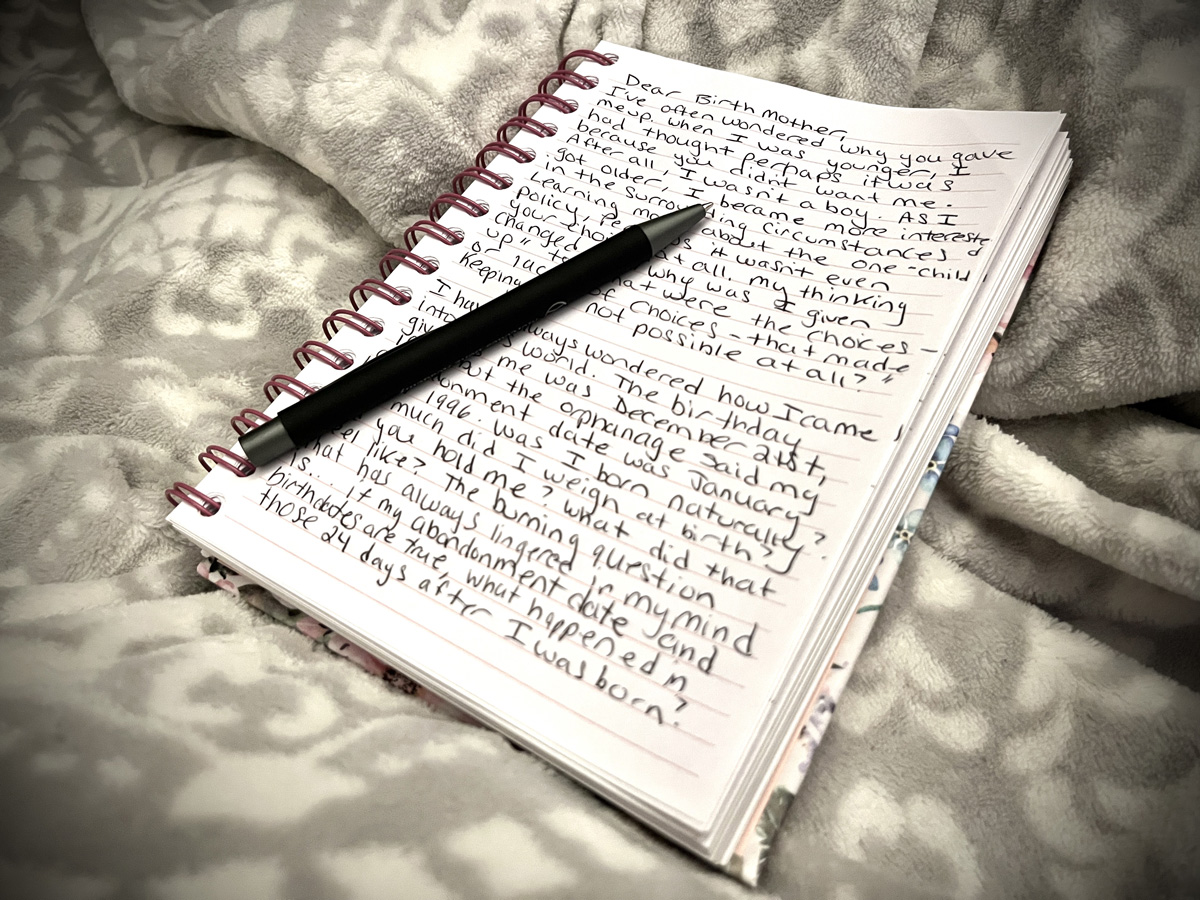 Dear Birth Mother,
I've often wondered why you gave
me up. when I was younger, I
had thought perhaps it was
because you didn't want me.
After all, I wasn't a boy. AS I
got older, I became more interested
in the surrounding circumstances
Learning about the one-child
policy, it wasn't even
your at all. my thinking
changed why was I given
up" what were the choices -
or of choices - that made
keeping not possible at all?"
I always wondered how I came
into world. The birthday
me was December 21st,
but the orphanage said my
date was January
1996. Was I born naturally?
much did I weigh at birth?
you hold me? what did that
feel like? The burning question
that has always lingered in my mind
is... if my abandonment date and
birthdates are true, what happened in
those 24 days after I was born?